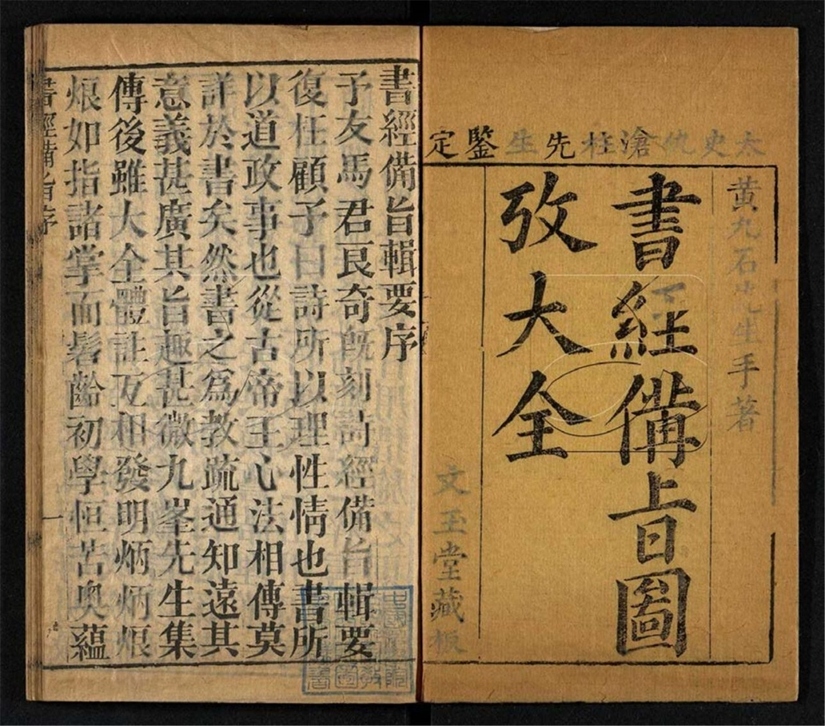 太史仇滄柱先生鑒定
黃九石先生手著
書經備旨圖
攷大全
文玉堂藏板
書經備旨輯要序
予友馬君良奇既刻詩經備旨輯要
復枉顧予曰詩所以理性情也書所
以道政事也從古帝王心法相傳莫
詳於書矣然書之爲教疏通知遠其
意義甚廣其旨趣甚微九峯先生集
傳後雖大全體註互相發明炳炳烺
烺如指諸掌而髫齡初學恒苦奧蘊
書經備旨序
一